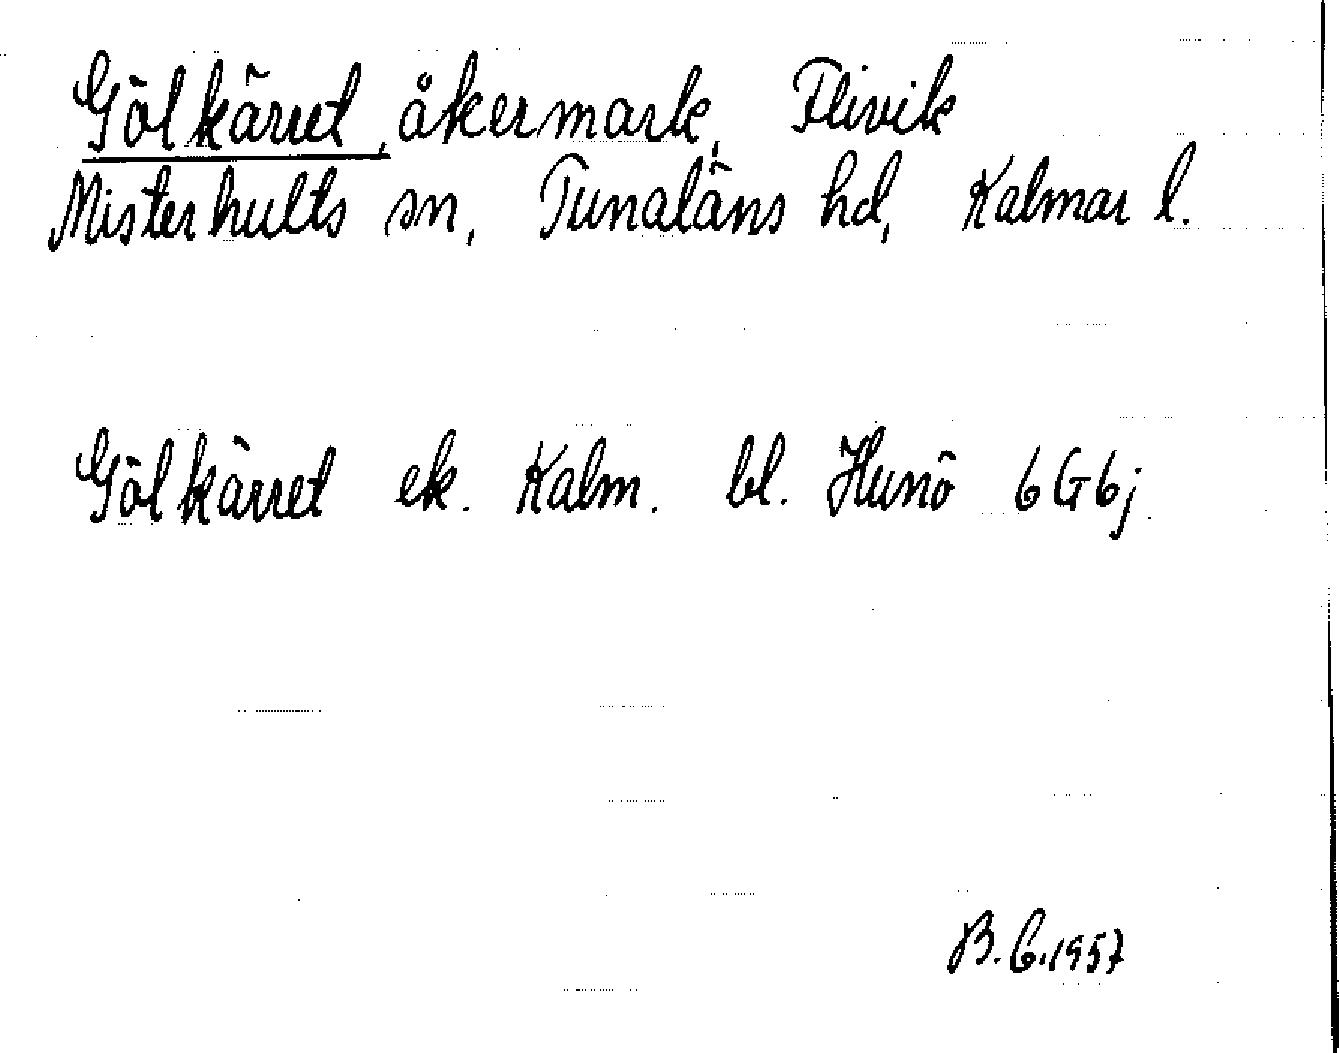 Gölkärret, åkermark, Flivik
Misterhults sn, Tunaläns hd, Kalmar l.
Gölkärret ek. Kalm. bl. Hunö 6G6j
B.C. 1957